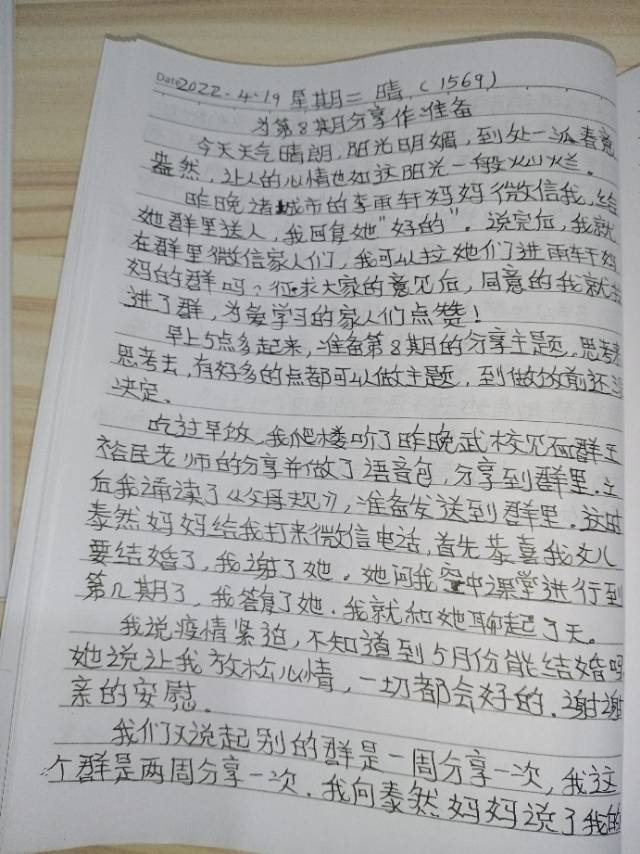 Date 2022.4.19 星期二 晴 (1569)
为第8期分享作准备
今天天气晴朗,阳光明媚,到处一派春意
盎然,让人的心情也如这阳光一般灿烂。
昨晚诸城市的李雨轩妈妈微信我,给
她群里送人,我回复她"好的"。说完后,我就
在群里微信家人们,我可以拉她们进雨轩妈
妈的群吗?征求大家的意见后,同意的我就拉
进了群,为爱学习的家人们点赞!
早上5点多起来,准备第8期的分享主题,思考来
思考去,有好多的点都可以做主题,到做饭前还没
决定。
吃过早饭,我爬楼听了昨晚武校见面群王
裕民老师的分享并做了语音包,分享到群里.之
后我诵读了《父母规》,准备发送到群里.这时
泰然妈妈给我打来微信电话,首先恭喜我女儿
要结婚了,我谢了她。她问我空中课堂进行到
第几期了,我答复了她.我就和她聊起了天。
我说疫情紧迫,不知道到5月份能结婚吗
她说让我放松心情,一切都会好的.谢谢
亲的安慰.
我们又说起别的群是一周分享一次,我这
个群是两周分享一次.我向泰然妈妈说了我的